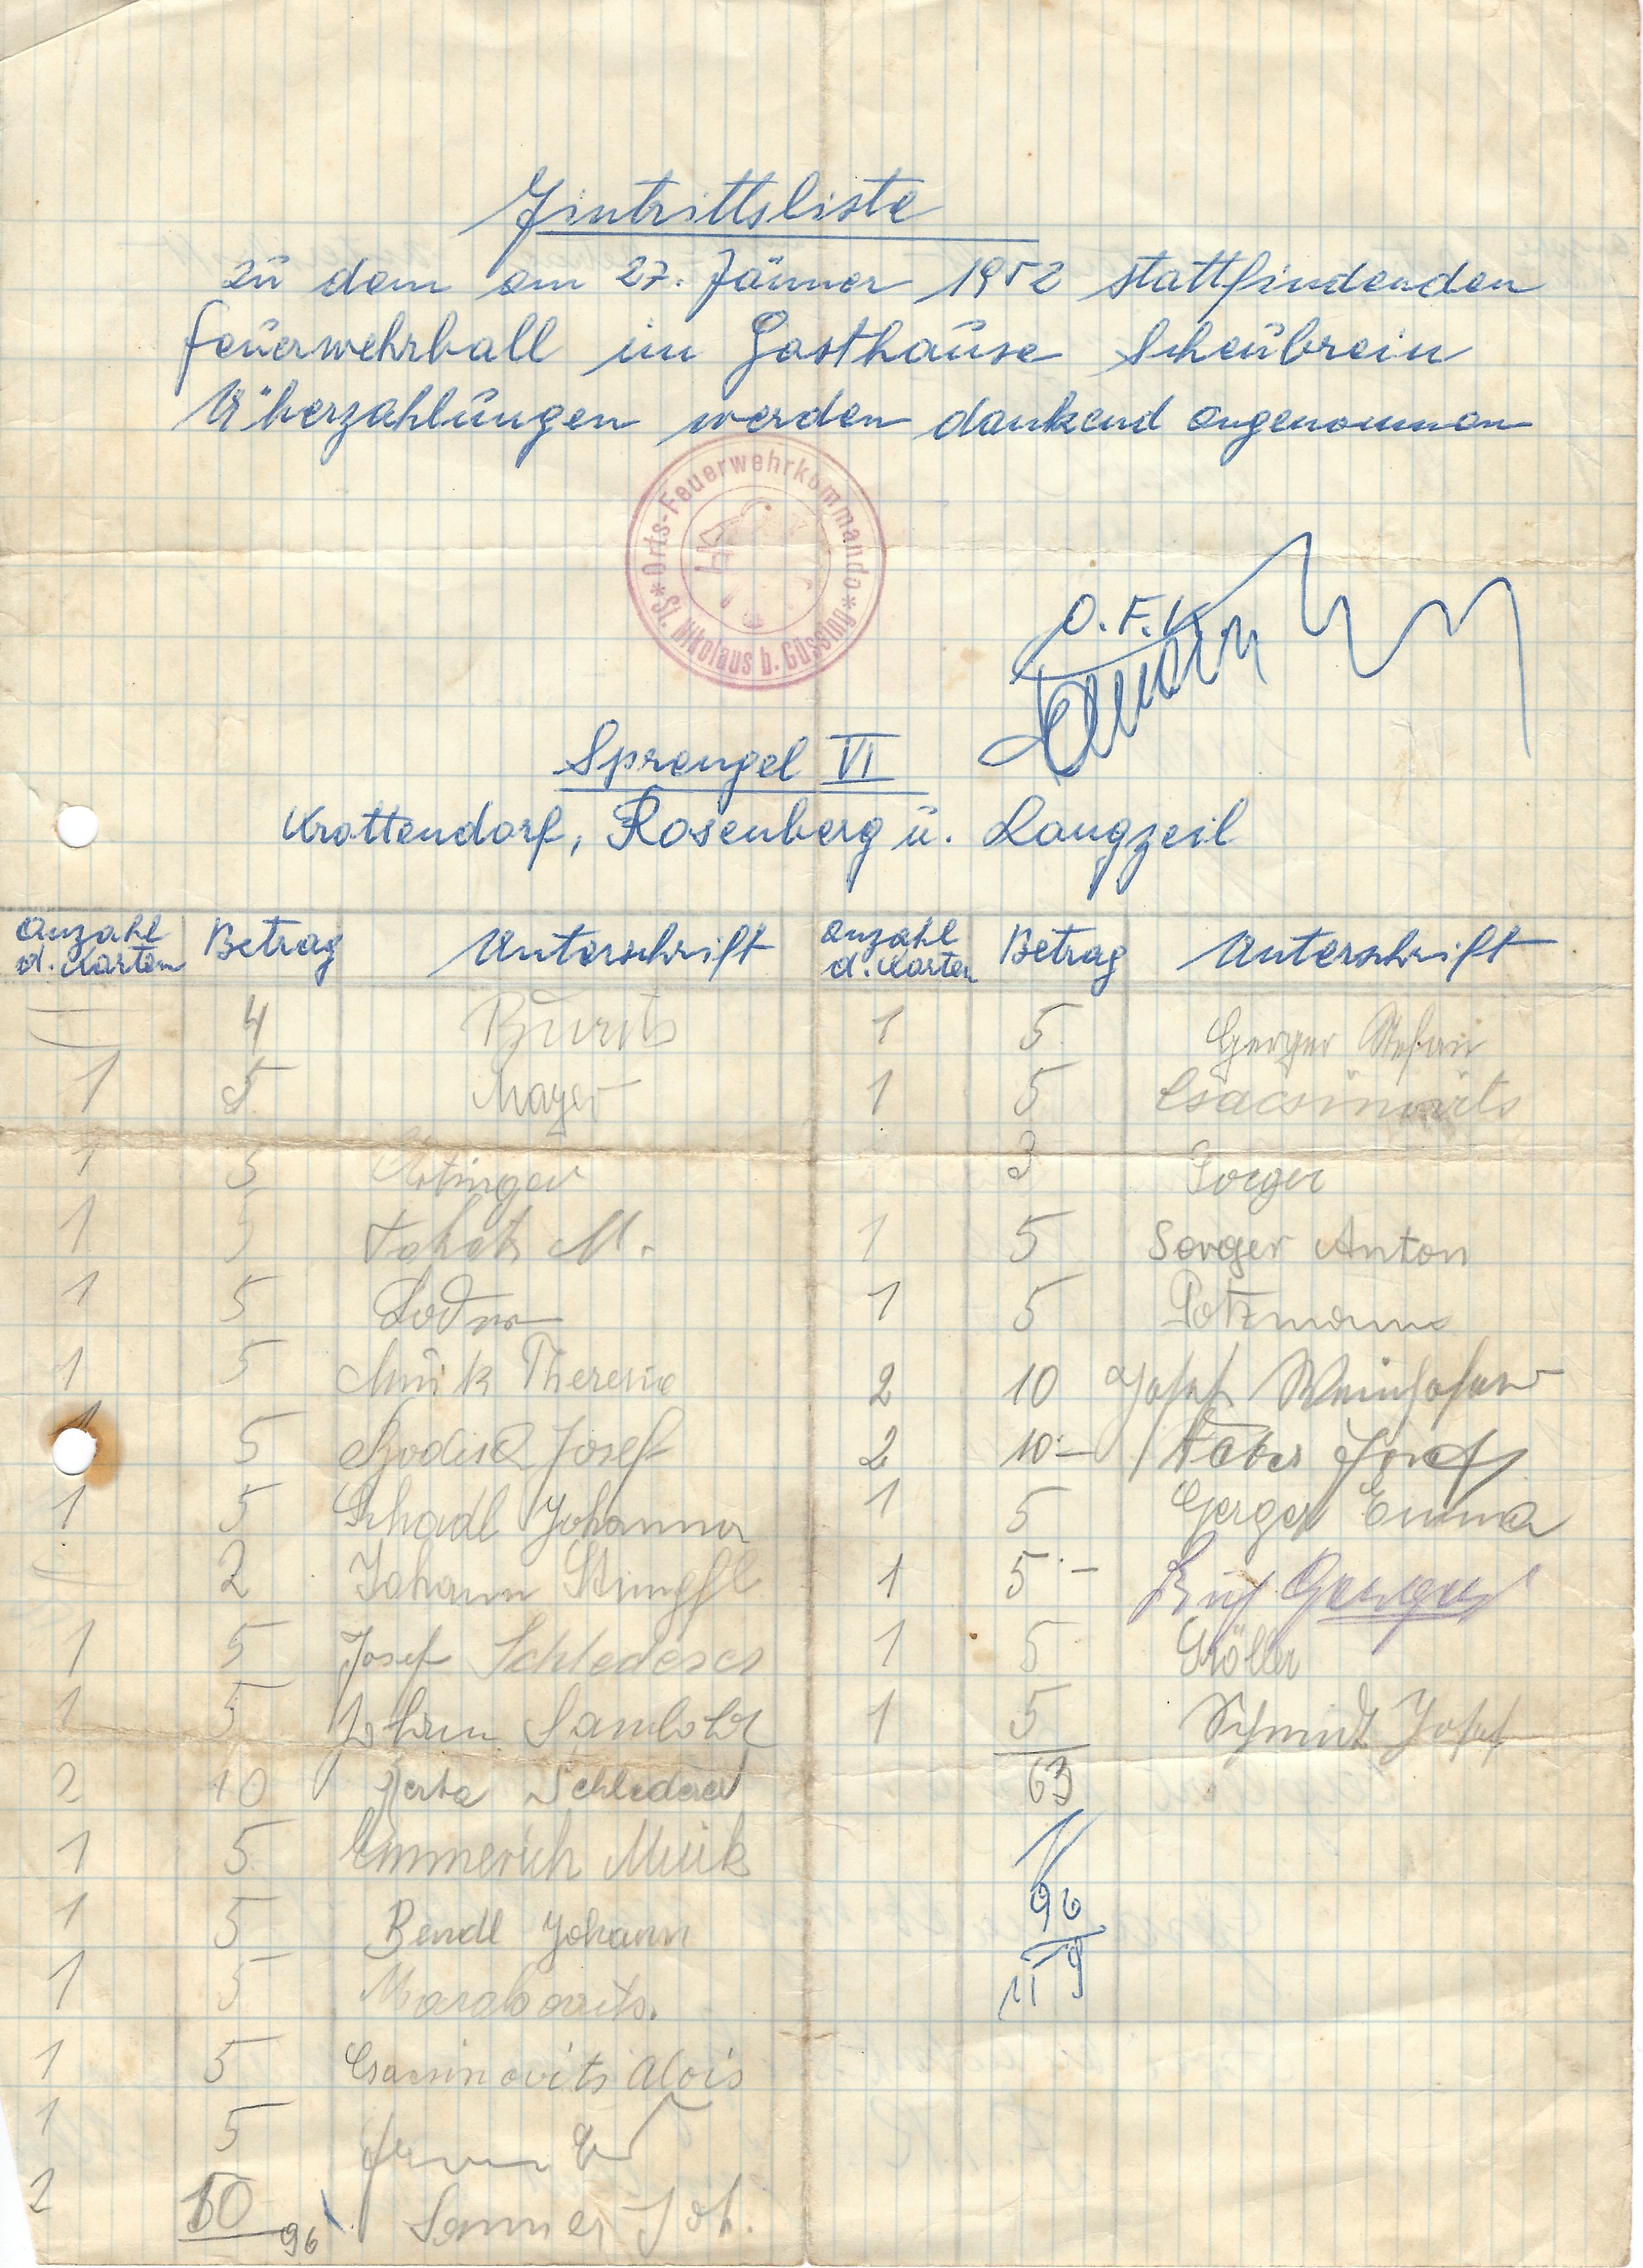 Eintrittsliste
zu dem am 27. Jänner 1952 stattfindenden
Feuerwehrball im Gasthause Scheubrein
Überzahlungen werden dankend angenommen
* Orts-Feuerwehrkommando *
St. Nikolaus b. Güssing
O. F. K.
Sprengel VI
Krottendorf, Rosenberg u. Langzeil
Anzahl d. Karten Betrag Unterschrift
— 4 Burits
1 5 Mayer
1 5
1 5 M.
1 5
1 5 Muik Theresia
1 5 Josef
1 5 Schadl Johanna
— 2 Johann Stimpfl
1 5 Josef Schlederer
1 5 Johann
2 10 Herta Schlederer
1 5 Emmerich Muik
1 5 Bendl Johann
1 5 Marakovits.
1 5 Csacsinovits Alois
1 5
2 10 Joh.
96
Anzahl d. Karten Betrag Unterschrift
1 5 Gerger Stefan
1 5 Csacsinovits
3 Sorger
1 5 Sorger Anton
1 5 Potzmann
2 10 Josef Weinhofer
2 10.– Faber Josef
1 5 Gerger Emma
1 5.– Gerger
1 5
1 5 Schmidt Josef
63
96